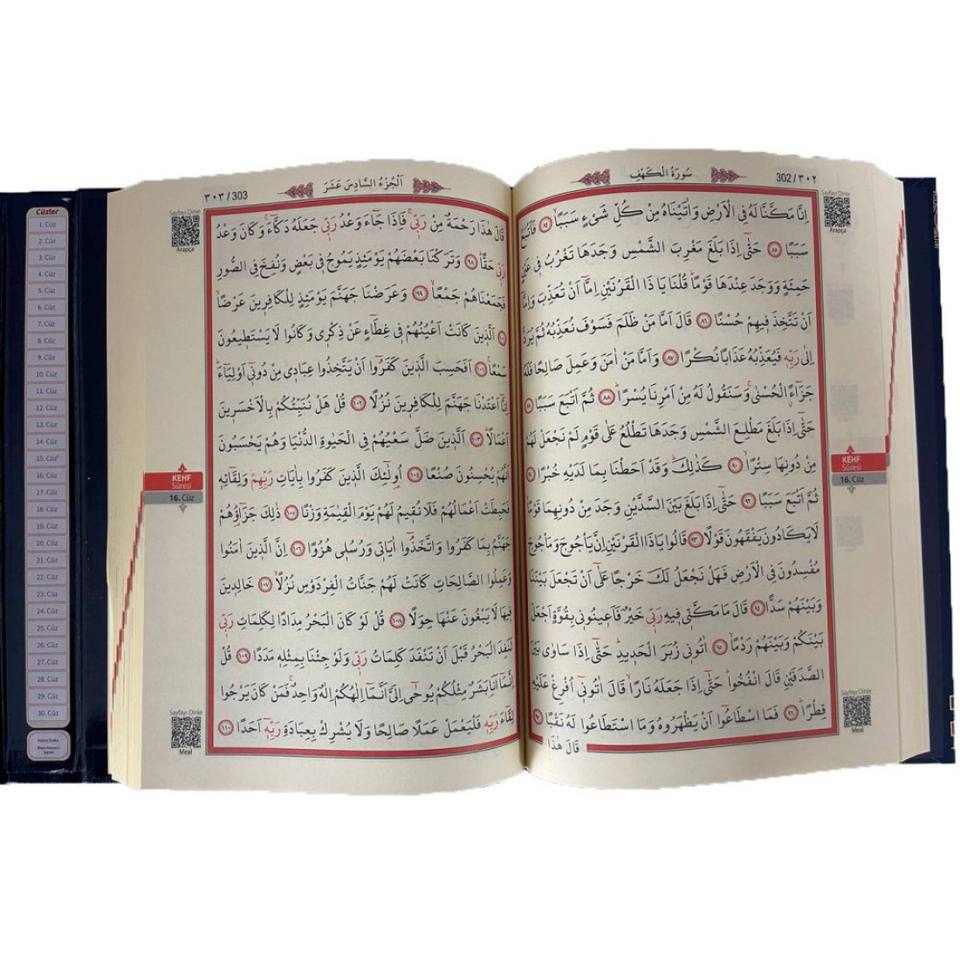 302 / ٣٠٢
سُورَةُ الْكَهْفِ
Sayfayı Dinle
Arapça
اِنَّا مَكَّنَّا لَهُ فِي الْاَرْضِ وَاٰتَيْنَاهُ مِنْ كُلِّ شَيْءٍ سَبَبًا ﴿٨٤﴾ فَاَتْبَعَ
سَبَبًا ﴿٨٥﴾ حَتّٰٓى اِذَا بَلَغَ مَغْرِبَ الشَّمْسِ وَجَدَهَا تَغْرُبُ فِي عَيْنٍ
حَمِئَةٍ وَوَجَدَ عِنْدَهَا قَوْمًا قُلْنَا يَا ذَا الْقَرْنَيْنِ اِمَّٓا اَنْ تُعَذِّبَ وَاِمَّٓا
اَنْ تَتَّخِذَ فِيهِمْ حُسْنًا ﴿٨٦﴾ قَالَ اَمَّا مَنْ ظَلَمَ فَسَوْفَ نُعَذِّبُهُ ثُمَّ يُرَدُّ
اِلٰى رَبِّهِ فَيُعَذِّبُهُ عَذَابًا نُكْرًا ﴿٨٧﴾ وَاَمَّا مَنْ اٰمَنَ وَعَمِلَ صَالِحًا فَلَهُ
جَزَٓاءًۨ الْحُسْنٰى وَسَنَقُولُ لَهُ مِنْ اَمْرِنَا يُسْرًا ﴿٨٨﴾ ثُمَّ اَتْبَعَ سَبَبًا ﴿٨٩﴾
حَتّٰٓى اِذَا بَلَغَ مَطْلِعَ الشَّمْسِ وَجَدَهَا تَطْلُعُ عَلٰى قَوْمٍ لَمْ نَجْعَلْ لَهُمْ
مِنْ دُونِهَا سِتْرًا ﴿٩٠﴾ كَذٰلِكَ وَقَدْ اَحَطْنَا بِمَا لَدَيْهِ خُبْرًا ﴿٩١﴾
ثُمَّ اَتْبَعَ سَبَبًا ﴿٩٢﴾ حَتّٰٓى اِذَا بَلَغَ بَيْنَ السَّدَّيْنِ وَجَدَ مِنْ دُونِهِمَا قَوْمًا
لَا يَكَادُونَ يَفْقَهُونَ قَوْلًا ﴿٩٣﴾ قَالُوا يَا ذَا الْقَرْنَيْنِ اِنَّ يَأْجُوجَ وَمَأْجُوجَ
مُفْسِدُونَ فِي الْاَرْضِ فَهَلْ نَجْعَلُ لَكَ خَرْجًا عَلٰٓى اَنْ تَجْعَلَ بَيْنَنَا
وَبَيْنَهُمْ سَدًّا ﴿٩٤﴾ قَالَ مَا مَكَّنّٰى فِيهِ رَبِّي خَيْرٌ فَاَعِينُونِي بِقُوَّةٍ اَجْعَلْ
بَيْنَكُمْ وَبَيْنَهُمْ رَدْمًا ﴿٩٥﴾ اٰتُونِي زُبَرَ الْحَدِيدِ حَتّٰٓى اِذَا سَاوٰى بَيْنَ
الصَّدَفَيْنِ قَالَ انْفُخُوا حَتّٰٓى اِذَا جَعَلَهُ نَارًا قَالَ اٰتُونِٓي اُفْرِغْ عَلَيْهِ
قِطْرًا ﴿٩٦﴾ فَمَا اسْطَاعُٓوا اَنْ يَظْهَرُوهُ وَمَا اسْتَطَاعُوا لَهُ نَقْبًا ﴿٩٧﴾
قَالَ هٰذَا
KEHF
Sûresi
16. Cüz
Sayfayı Dinle
Meal
اَلْجُزْءُ السَّادِسَ عَشَرَ
٣٠٣ / 303
Sayfayı Dinle
Arapça
قَالَ هٰذَا رَحْمَةٌ مِنْ رَبِّي فَاِذَا جَٓاءَ وَعْدُ رَبِّي جَعَلَهُ دَكَّٓاءَ وَكَانَ وَعْدُ
رَبِّي حَقًّا ﴿٩٨﴾ وَتَرَكْنَا بَعْضَهُمْ يَوْمَئِذٍ يَمُوجُ فِي بَعْضٍ وَنُفِخَ فِي الصُّورِ
فَجَمَعْنَاهُمْ جَمْعًا ﴿٩٩﴾ وَعَرَضْنَا جَهَنَّمَ يَوْمَئِذٍ لِلْكَافِرِينَ عَرْضًا
﴿١٠٠﴾ اَلَّذِينَ كَانَتْ اَعْيُنُهُمْ فِي غِطَٓاءٍ عَنْ ذِكْرِي وَكَانُوا لَا يَسْتَطِيعُونَ
سَمْعًا ﴿١٠١﴾ اَفَحَسِبَ الَّذِينَ كَفَرُٓوا اَنْ يَتَّخِذُوا عِبَادِي مِنْ دُونِٓي اَوْلِيَٓاءَ
اِنَّٓا اَعْتَدْنَا جَهَنَّمَ لِلْكَافِرِينَ نُزُلًا ﴿١٠٢﴾ قُلْ هَلْ نُنَبِّئُكُمْ بِالْاَخْسَرِينَ
اَعْمَالًا ﴿١٠٣﴾ اَلَّذِينَ ضَلَّ سَعْيُهُمْ فِي الْحَيٰوةِ الدُّنْيَا وَهُمْ يَحْسَبُونَ
اَنَّهُمْ يُحْسِنُونَ صُنْعًا ﴿١٠٤﴾ اُو۬لٰٓئِكَ الَّذِينَ كَفَرُوا بِاٰيَاتِ رَبِّهِمْ وَلِقَٓائِهِ
فَحَبِطَتْ اَعْمَالُهُمْ فَلَا نُقِيمُ لَهُمْ يَوْمَ الْقِيٰمَةِ وَزْنًا ﴿١٠٥﴾ ذٰلِكَ جَزَٓاؤُهُمْ
جَهَنَّمُ بِمَا كَفَرُوا وَاتَّخَذُٓوا اٰيَاتِي وَرُسُلِي هُزُوًا ﴿١٠٦﴾ اِنَّ الَّذِينَ اٰمَنُوا
وَعَمِلُوا الصَّالِحَاتِ كَانَتْ لَهُمْ جَنَّاتُ الْفِرْدَوْسِ نُزُلًا ﴿١٠٧﴾ خَالِدِينَ
فِيهَا لَا يَبْغُونَ عَنْهَا حِوَلًا ﴿١٠٨﴾ قُلْ لَوْ كَانَ الْبَحْرُ مِدَادًا لِكَلِمَاتِ رَبِّي
لَنَفِدَ الْبَحْرُ قَبْلَ اَنْ تَنْفَدَ كَلِمَاتُ رَبِّي وَلَوْ جِئْنَا بِمِثْلِهِ مَدَدًا ﴿١٠٩﴾ قُلْ
اِنَّمَٓا اَنَا۬ بَشَرٌ مِثْلُكُمْ يُوحٰٓى اِلَيَّ اَنَّمَٓا اِلٰهُكُمْ اِلٰهٌ وَاحِدٌ فَمَنْ كَانَ يَرْجُوا
لِقَٓاءَ رَبِّهِ فَلْيَعْمَلْ عَمَلًا صَالِحًا وَلَا يُشْرِكْ بِعِبَادَةِ رَبِّهِٓ اَحَدًا ﴿١١٠﴾
KEHF
Sûresi
16. Cüz
Sayfayı Dinle
Meal
Cüzler
1. Cüz
2. Cüz
3. Cüz
4. Cüz
5. Cüz
6. Cüz
7. Cüz
8. Cüz
9. Cüz
10. Cüz
11. Cüz
12. Cüz
13. Cüz
14. Cüz
15. Cüz
16. Cüz
17. Cüz
18. Cüz
19. Cüz
20. Cüz
21. Cüz
22. Cüz
23. Cüz
24. Cüz
25. Cüz
26. Cüz
27. Cüz
28. Cüz
29. Cüz
30. Cüz